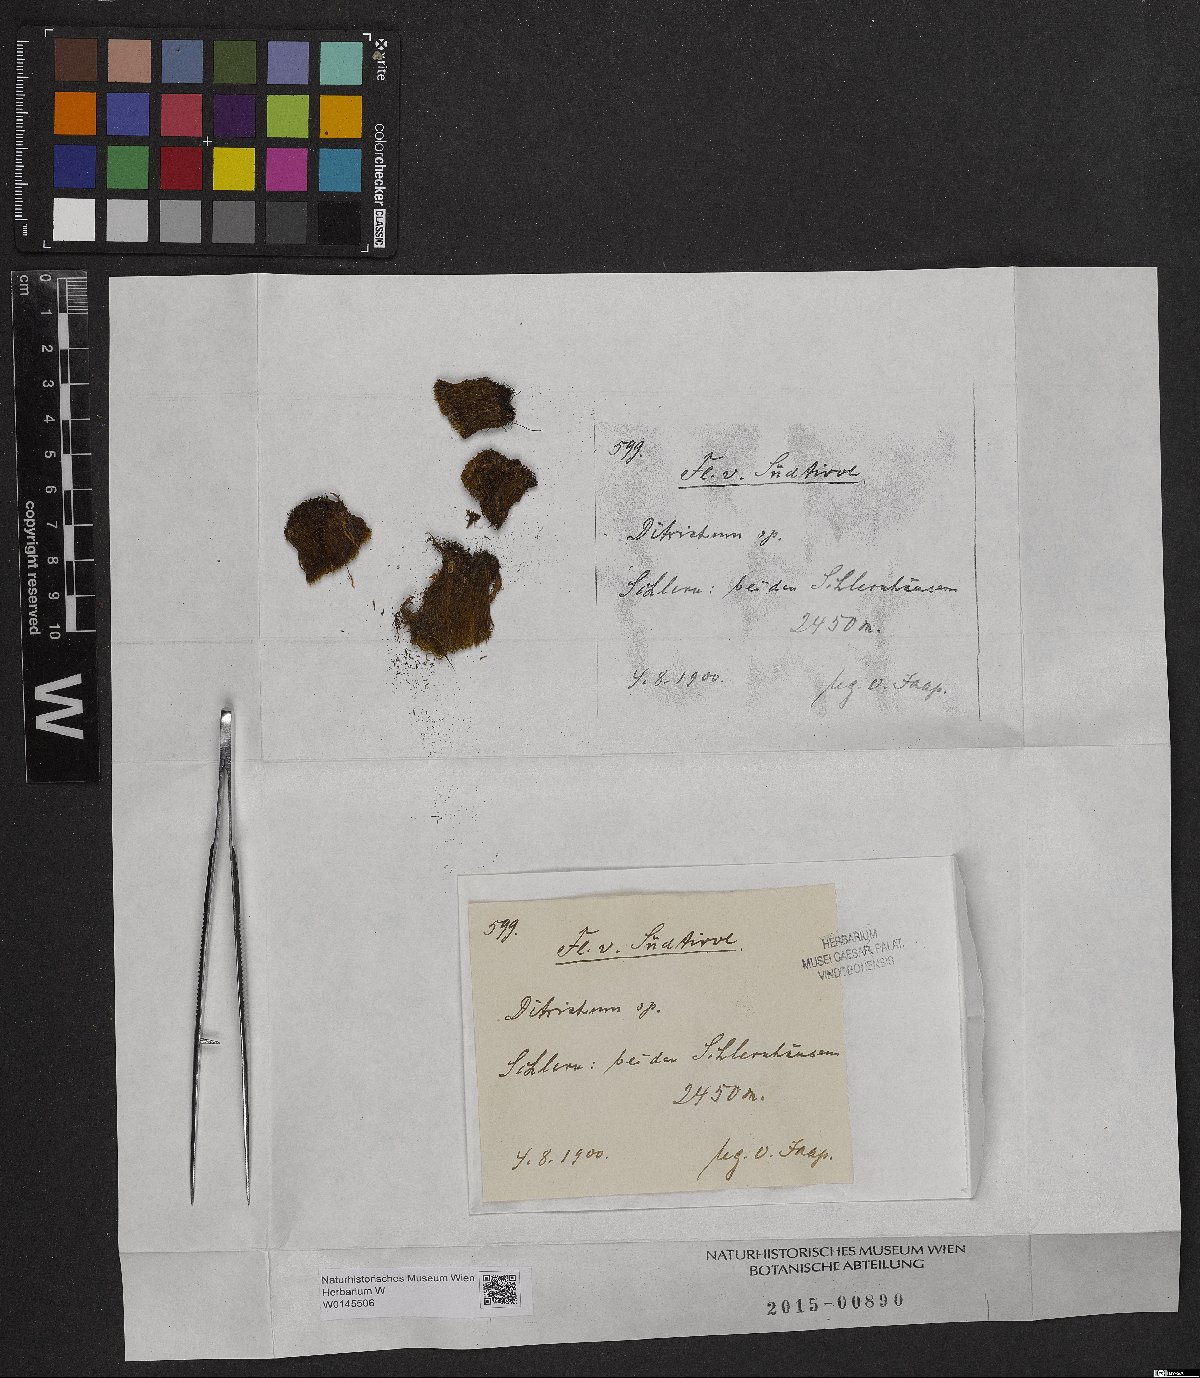 x-rite
colorchecker CLASSIC
mm
cm
0 1 2 3 4 5 6 7 8 9 10
copyright reserved
W
599.
Fl. v. Südtirol.
Ditrichum sp.
Schlern: bei den Schlernhäusern
2450 m.
4. 8. 1900.
leg. O. Jaap.
599.
Fl. v. Südtirol.
Ditrichum sp.
Schlern: bei den Schlernhäusern
2450 m.
4. 8. 1900.
leg. O. Jaap.
HERBARIUM
MUSEI CAESAR. PALAT.
VINDOBONENSIS
NATURHISTORISCHES MUSEUM WIEN
BOTANISCHE ABTEILUNG
2015-00890
Naturhistorisches Museum Wien
Herbarium W
W0145506